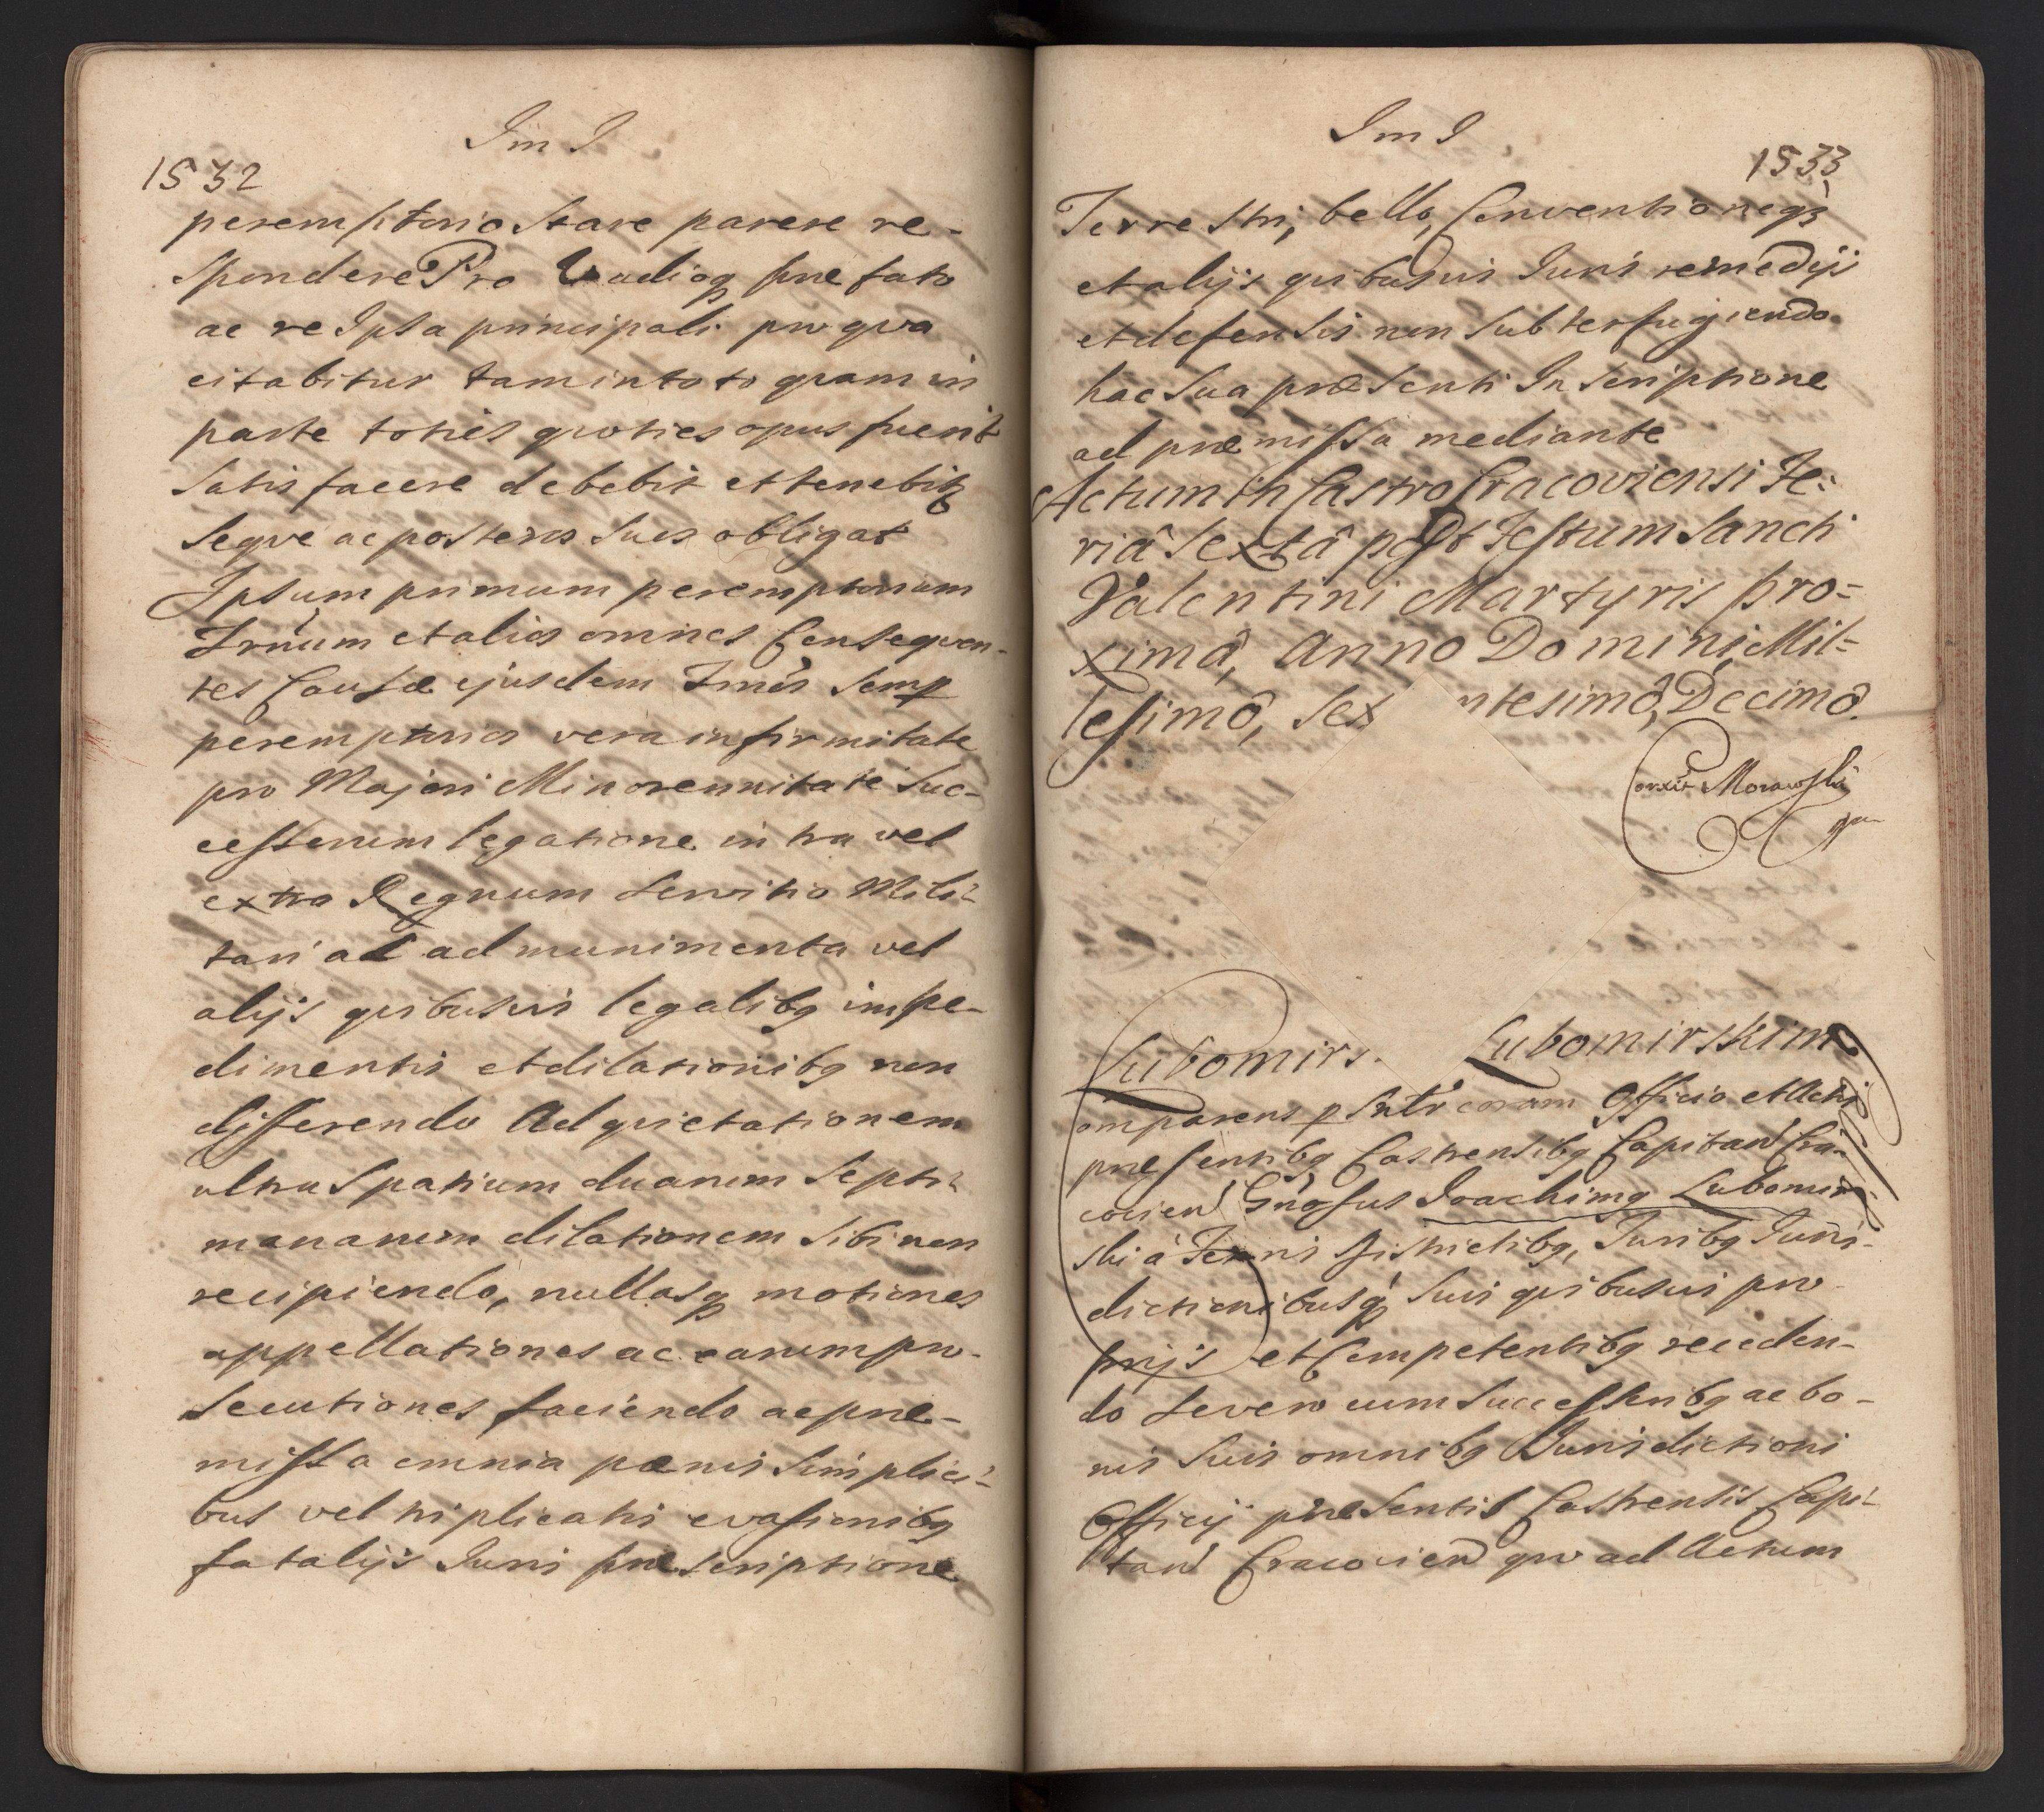 Im I
1532
peremptorio Stare parere re-
spondere Pro Vadioq praefato
ac re Ipsa principali pro qva
citabitur tam in toto quam in
parte toties qvoties opus fuerit
Satisfacere debebit et tenebitq
Seqve ac posteros Suos obligat
Ipsum primum peremptorium
Trnum et alios omnes Conseqven-
tes Causae ejusdem Tmos Semp
peremptorios vera infirmitate
pro Majori Minorennitate Suc-
cessorum legatione intra vel
extra Regnum Servitio Mili-
tari ac ad munimenta vel
alijs qvibusvis legalibq impe-
dimentis et dilationibq non
differendo Ad qvietationem
ultra Spatium duarum Septi-
manarum dilationem Sibi non
recipiendo, nullasq motiones
appellationes ac earum pro-
Secutiones faciendo ac prae-
missa omnia paenis Simplici-
bus vel triplicatis evasionibq
fatalijs Juris praescriptione
Im I
1533
Terrestri, bello, Conventioneqs
et alijs qvibusvis Juris remedijs
et defensis non Subterfugiendo
hac Sua praesenti Inscriptione
ad praemissa mediante
Actum in Castro Cracoviensi Fe-
riâ Sextâ post Festum Sancti
Valentini Martyris pro-
ximâ, Anno Domini, Mil-
lesimô, Sex ntesimô, Decimô.
Conxit Morawski
mp
Lubomirs. Lubomirskim
omparens psnlr coram Officio et Actis
praesentibq Castrensibq Capitan Cra-
covien Gnosus Joachimq Lubomir
ski à Terris Districtibq, Juribq Juris-
dictionibusq Suis qvibusvis pro-
prijs et Competentibq receden-
do Se vero cum Successoribq ac bo-
nis Suis omnibq Jurisdictioni
Officij praesentis Castrensis Capi-
tan Cracovien qvo ad Actum